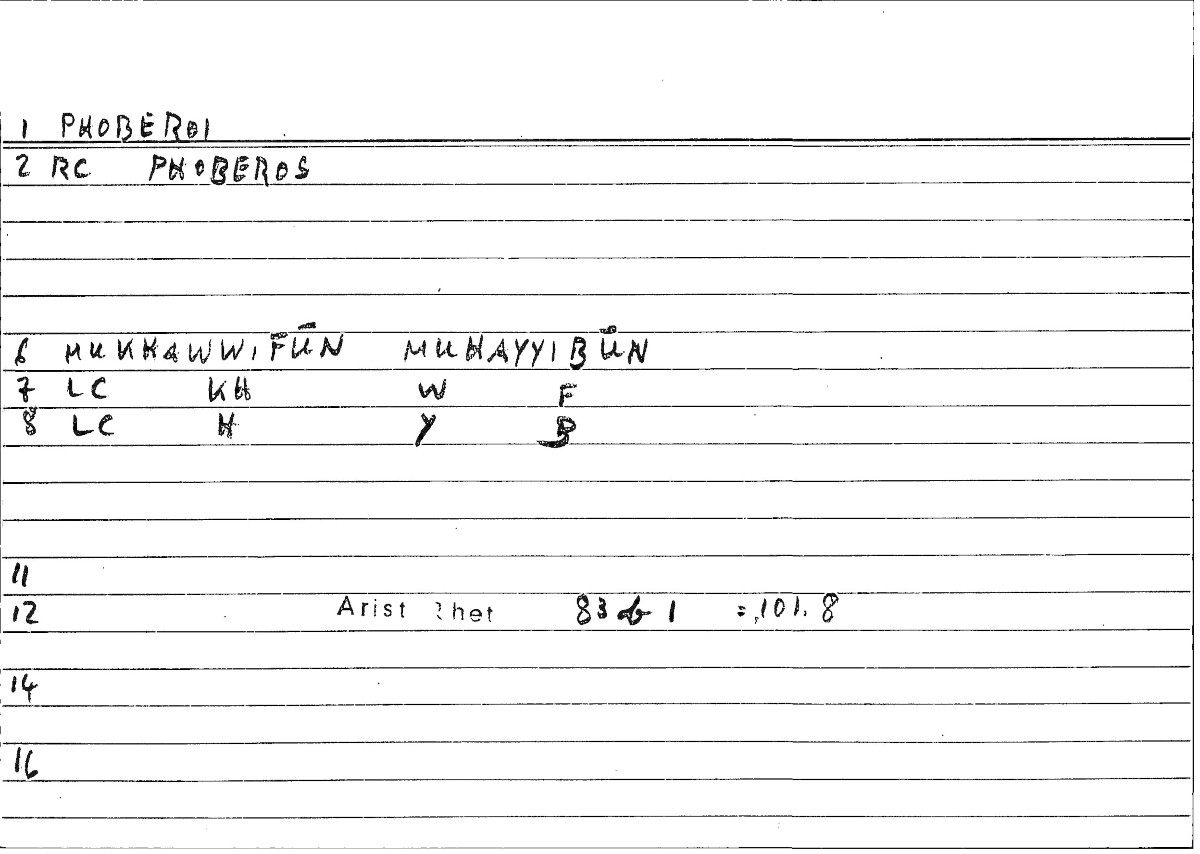 1 PHOBEROI
2 RC PHOBEROS
6 MUKHAWWIFŪN MUHAYYIBŪN
7 LC KH W F
8 LC H Y B
11
12 Arist Rhet 83 b 1 = 101.8
14
16